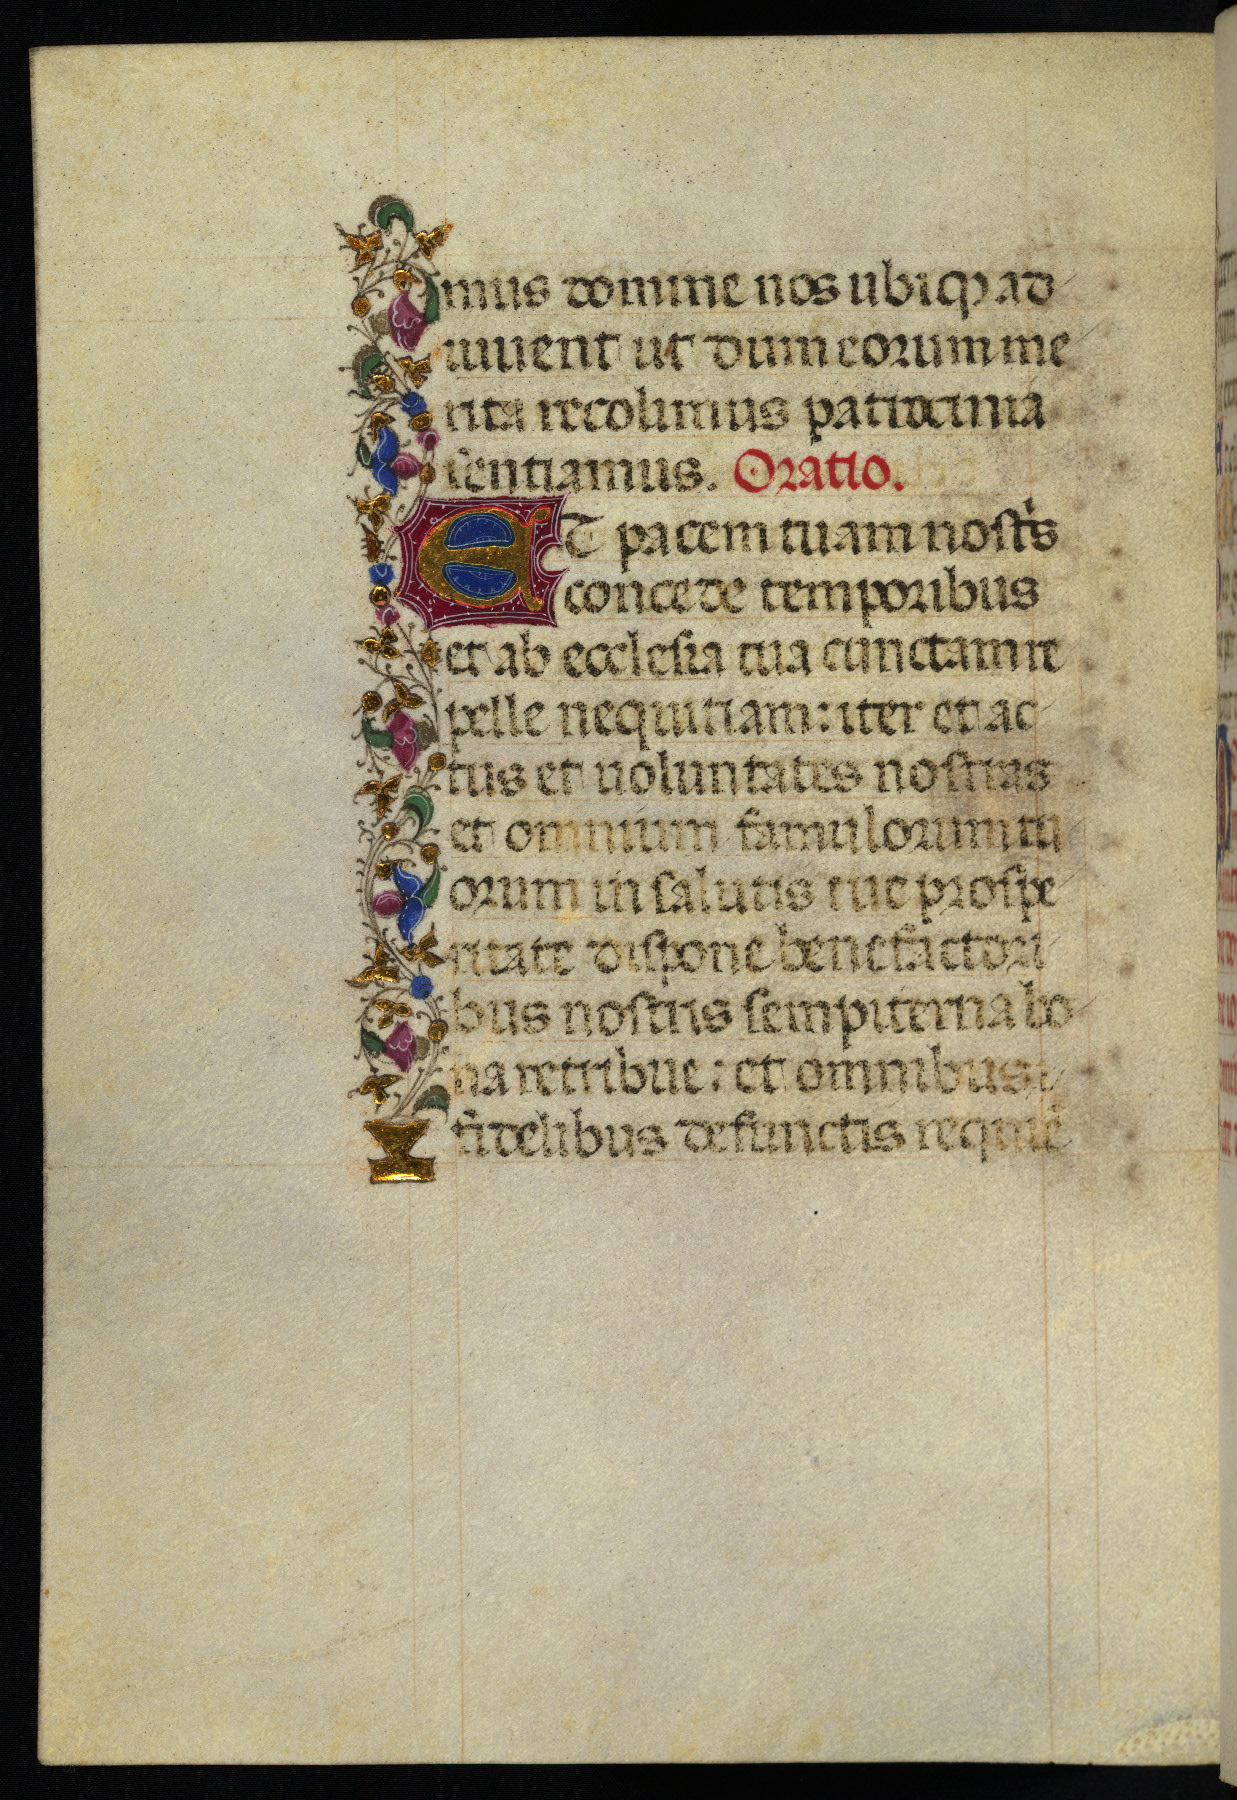 mus domine nos ubiqȝ ad
iuuent ut dum eorum me
rita recolimus patrocinia
sentiamus. Oratio.
ET pacem tuam nostr̃is
concede temporibus
et ab ecclesia tua cunctam re
pelle nequitiam: iter et ac
tus et uoluntates nostras
et omnium famulorum tu
orum in salutis tue prospe
ritate dispone benefactori
bus nostris sempiterna bo
na retribue: et omnibus
fidelibus defunctis requiē